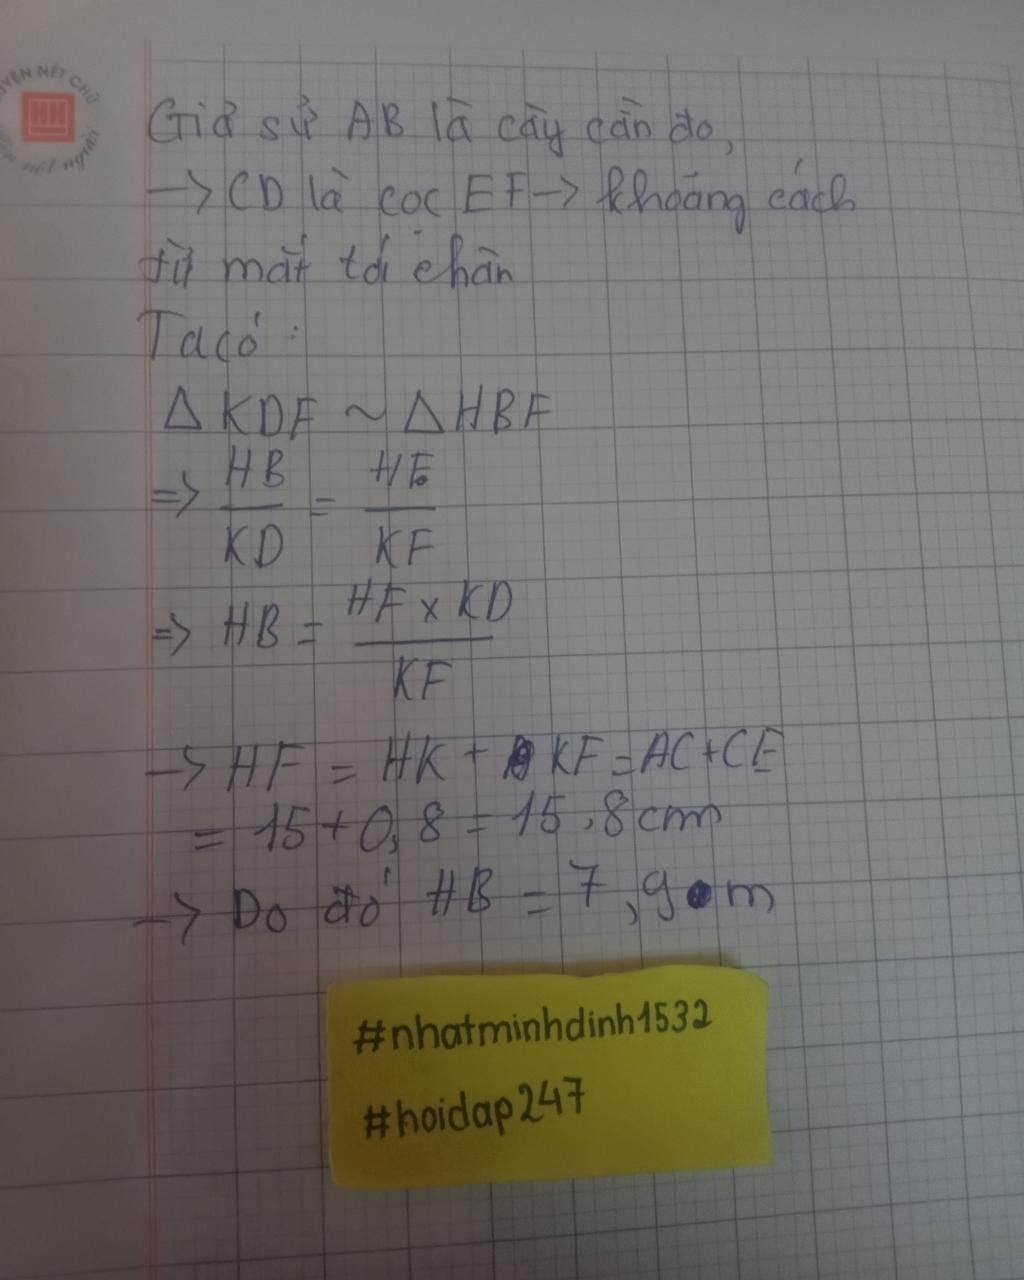 LUYỆN NÉT CHỮ
RÈN NẾT NGƯỜI
Giả sử AB là cây cần đo,
-> CD là cọc EF -> khoảng cách
từ mắt tới chân
Ta có :
Δ KDF ~ Δ HBF
=> HB/KD = HF/KF
=> HB = HF x KD / KF
-> HF = HK + KF = AC + CE
= 15 + 0,8 = 15,8 cm
-> Do đó HB = 7,9 m
#nhatminhdinh1532
#hoidap247